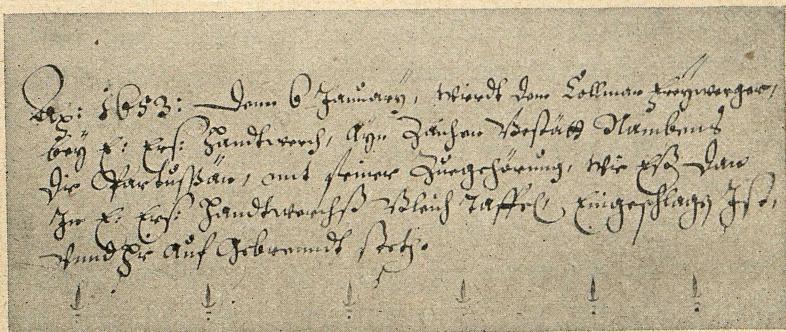 Ao: 1653: Denn 6 January, wierdt dem Collman Freywerger,
bey E: Ers: Handtwerch, Ayn Zaichen Bestätt Nambens
die Partuſſän, mit ſeiner Zuegehörung, wie eß dan
In E: Ers: Handtwerchß Bleich Taffel, Eingeschlagen Iſt,
vnnd Er Auf Gebrenndt